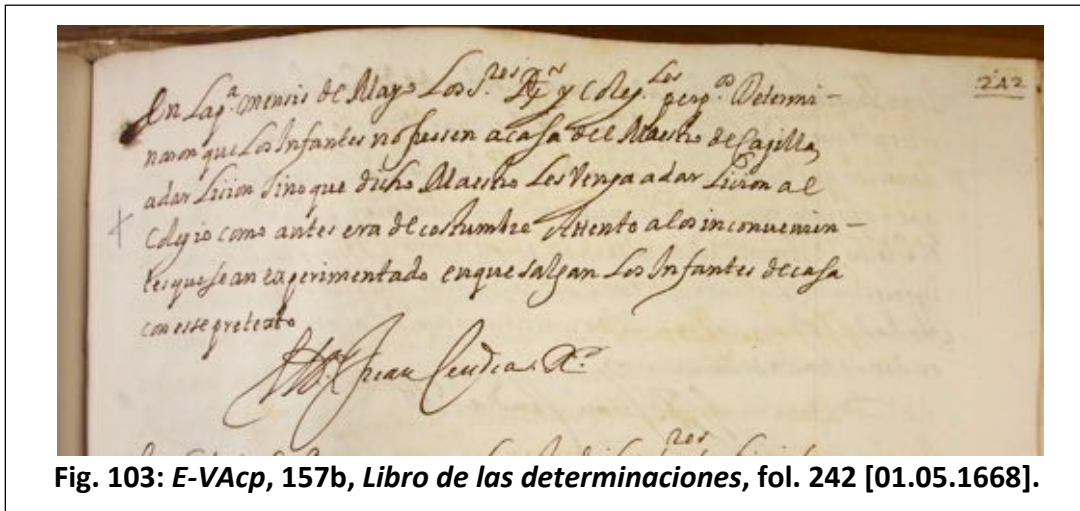 242
En La p.ª mensis de Mayo Los S.res Rr y Coleg.les perp.os Determi-
naron que Los Infantes no fuessen a casa del Maestro de Capilla
a dar Licion Sino que dicho Maestro Les Venga a dar Licion al
Colegio como antes era de costumbre Attento a los inconvenien-
tes que se an experimentado en que salgan Los Infantes de casa
con esse pretexto
Juan
Fig. 103: E-VAcp, 157b, Libro de las determinaciones, fol. 242 [01.05.1668].